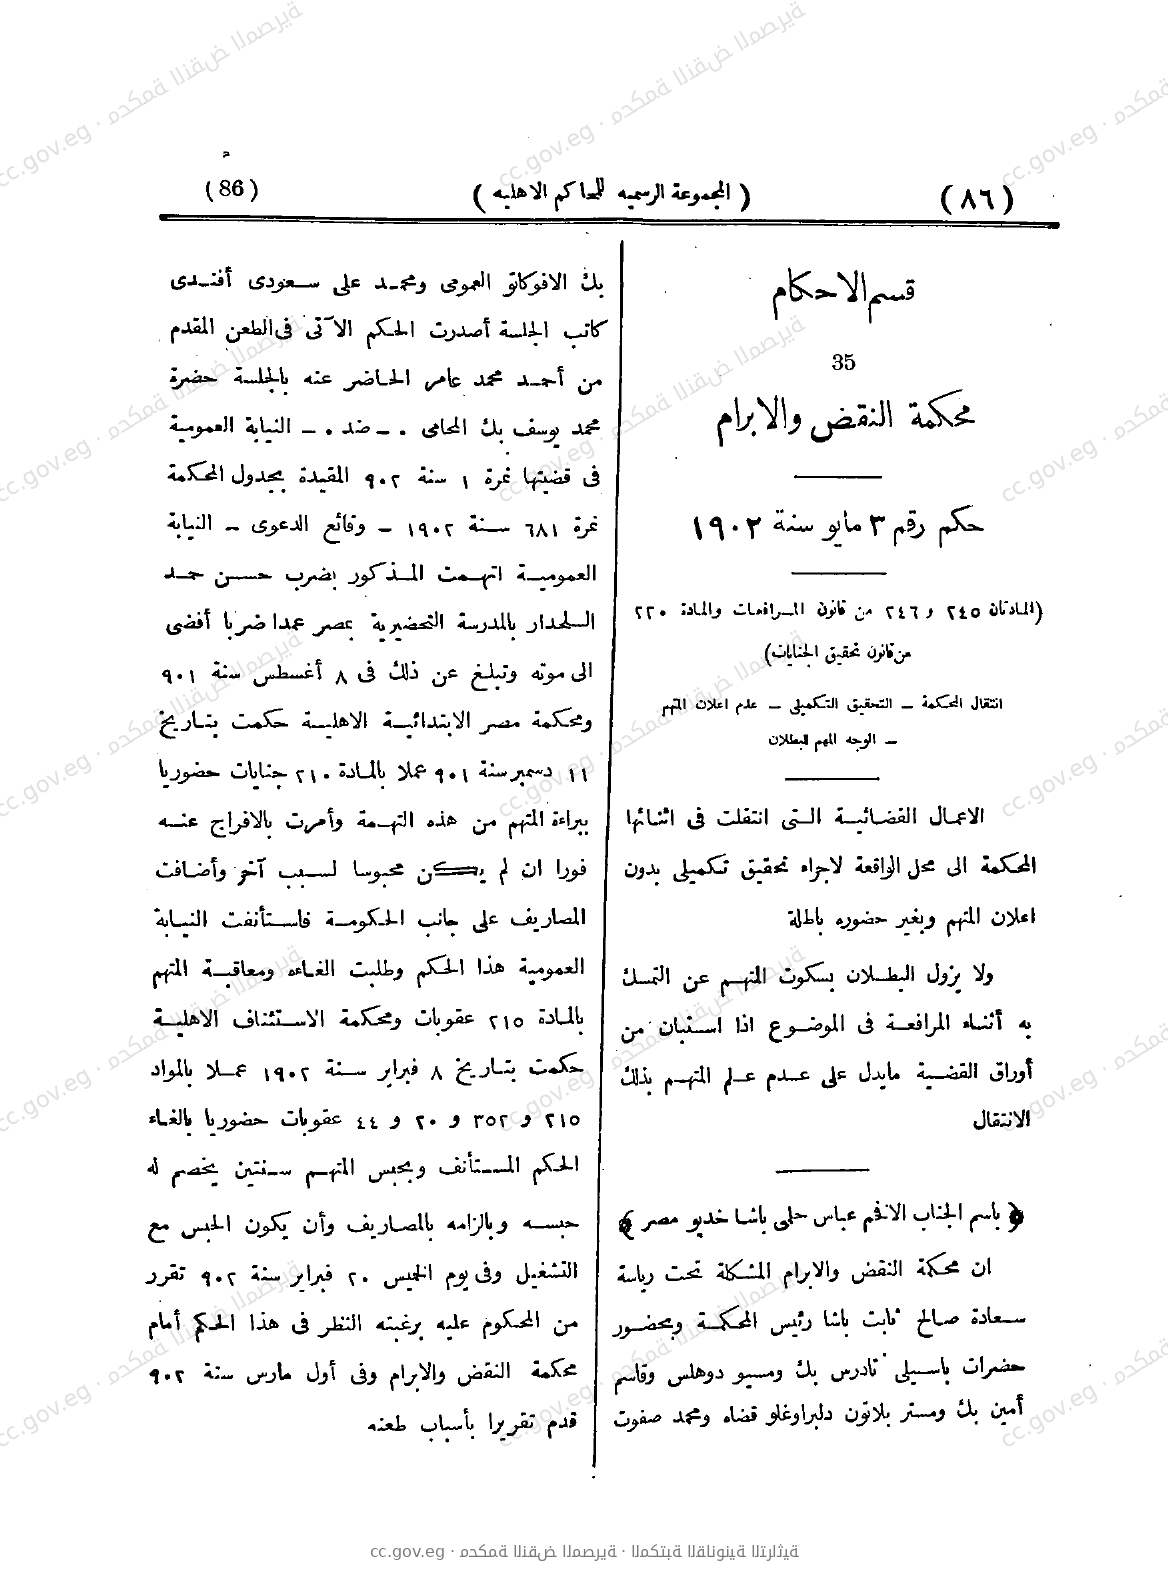 (٨٦)
(المجموعة الرسميه للمحاكم الاهليه)
(86)
قسم الاحكام
35
محكمة النقض والابرام
حكم رقم ٣ مايو سنة ١٩٠٢
(المادتان ٢٤٥ و ٢٤٦ من قانون المرافعات والمادة ٢٢٠
من قانون تحقيق الجنايات)
انتقال المحكمة – التحقيق التكميلى – عدم اعلان المتهم
– الوجه المهم للبطلان
الاعمال القضائية التى انتقلت فى اثنائها
المحكمة الى محل الواقعة لاجراء تحقيق تكميلى بدون
اعلان المتهم وبغير حضوره باطلة
ولا يزول البطلان بسكوت المتهم عن التمسك
به أثناء المرافعة فى الموضوع اذا استبان من
أوراق القضية مايدل على عدم علم المتهم بذلك
الانتقال
﴿ باسم الجناب الافخم عباس حلمى باشا خديو مصر ﴾
ان محكمة النقض والابرام المشكلة تحت رياسة
سعادة صالح ثابت باشا رئيس المحكمة وبحضور
حضرات باسيلى تادرس بك ومسيو دوهلس وقاسم
أمين بك ومستر بلاتون دلبراوغلو قضاه ومحمد صفوت
بك الافوكاتو العمومى ومحمد على سعودى أفندى
كاتب الجلسة أصدرت الحكم الآتى فى الطعن المقدم
من أحمد محمد عامر الحاضر عنه بالجلسة حضرة
محمد يوسف بك المحامى . – ضد . – النيابة العمومية
فى قضيتها نمرة ١ سنة ٩٠٢ المقيدة بجدول المحكمة
نمرة ٦٨١ سنة ١٩٠٢ – وقائع الدعوى – النيابة
العمومية اتهمت المذكور بضرب حسن حمد
السلحدار بالمدرسة التحضيرية بمصر عمدا ضربا أفضى
الى موته وتبلغ عن ذلك فى ٨ أغسطس سنة ٩٠١
ومحكمة مصر الابتدائية الاهلية حكمت بتاريخ
١١ دسمبر سنة ٩٠١ عملا بالمادة ٢١٠ جنايات حضوريا
ببراءة المتهم من هذه التهمة وأمرت بالافراج عنه
فورا ان لم يكن محبوسا لسبب آخر وأضافت
المصاريف على جانب الحكومة فاستأنفت النيابة
العمومية هذا الحكم وطلبت الغاءه ومعاقبة المتهم
بالمادة ٢١٥ عقوبات ومحكمة الاستئناف الاهلية
حكمت بتاريخ ٨ فبراير سنة ١٩٠٢ عملا بالمواد
٢١٥ و ٣٥٢ و ٢٠ و ٤٤ عقوبات حضوريا بالغاء
الحكم المستأنف وبحبس المتهم سنتين يخصم له
حبسه وبالزامه بالمصاريف وأن يكون الحبس مع
التشغيل وفى يوم الخميس ٢٠ فبراير سنة ٩٠٢ تقرر
من المحكوم عليه برغبته النظر فى هذا الحكم أمام
محكمة النقض والابرام وفى أول مارس سنة ٩٠٢
قدم تقريرا بأسباب طعنه
cc.gov.eg · محكمة النقض المصرية · المكتبة القانونية التراثية